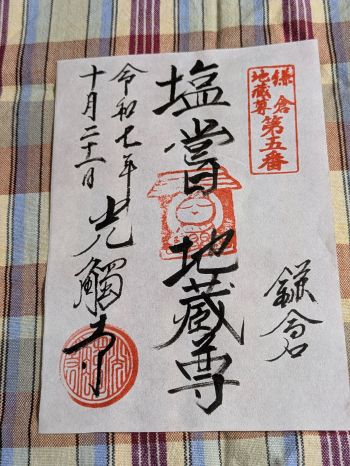 鎌倉
地蔵尊
第五番
鎌倉
塩嘗地蔵尊
光觸寺
令和七年
十月二十一日